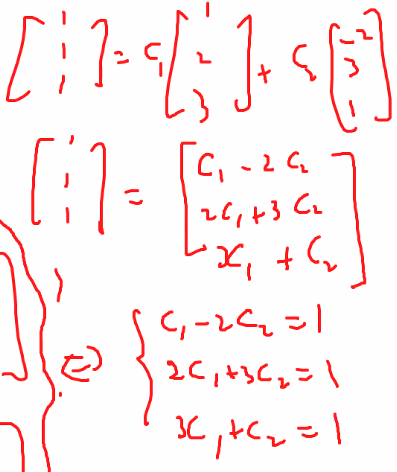 [1 1 1] = C₁ [1 2 3] + C₂ [-2 3 1]
[1 1 1] = [C₁ - 2C₂
2C₁+3C₂
3C₁ + C₂]
⇔ { C₁ - 2C₂ = 1
2C₁+3C₂ = 1
3C₁+C₂ = 1